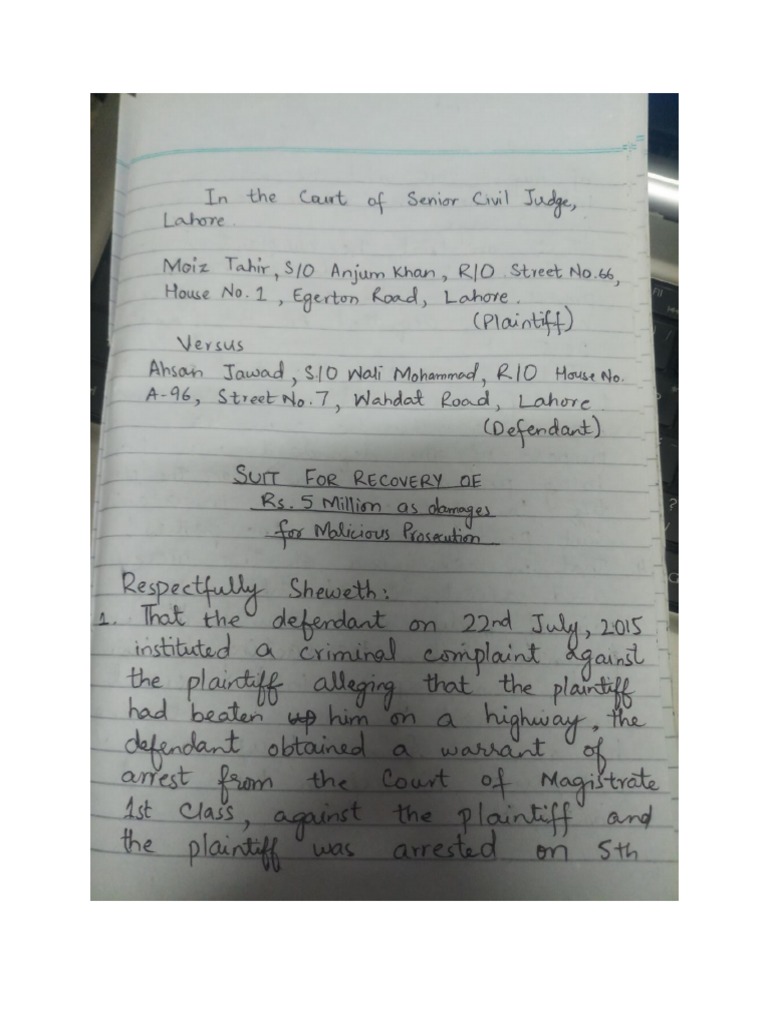 In the Court of Senior Civil Judge,
Lahore.
Moiz Tahir, S/O Anjum Khan, R/O Street No.66,
House No. 1, Egerton Road, Lahore.
(Plaintiff)
Versus
Ahsan Jawad, S/O Wali Mohammad, R/O House No.
A-96, Street No. 7, Wahdat Road, Lahore.
(Defendant)
SUIT FOR RECOVERY OF
Rs. 5 Million as damages
for Malicious Prosecution
Respectfully Sheweth:
1. That the defendant on 22nd July, 2015
instituted a criminal complaint against
the plaintiff alleging that the plaintiff
had beaten up him on a highway, the
defendant obtained a warrant of
arrest from the Court of Magistrate
1st Class, against the plaintiff and
the plaintiff was arrested on 5th